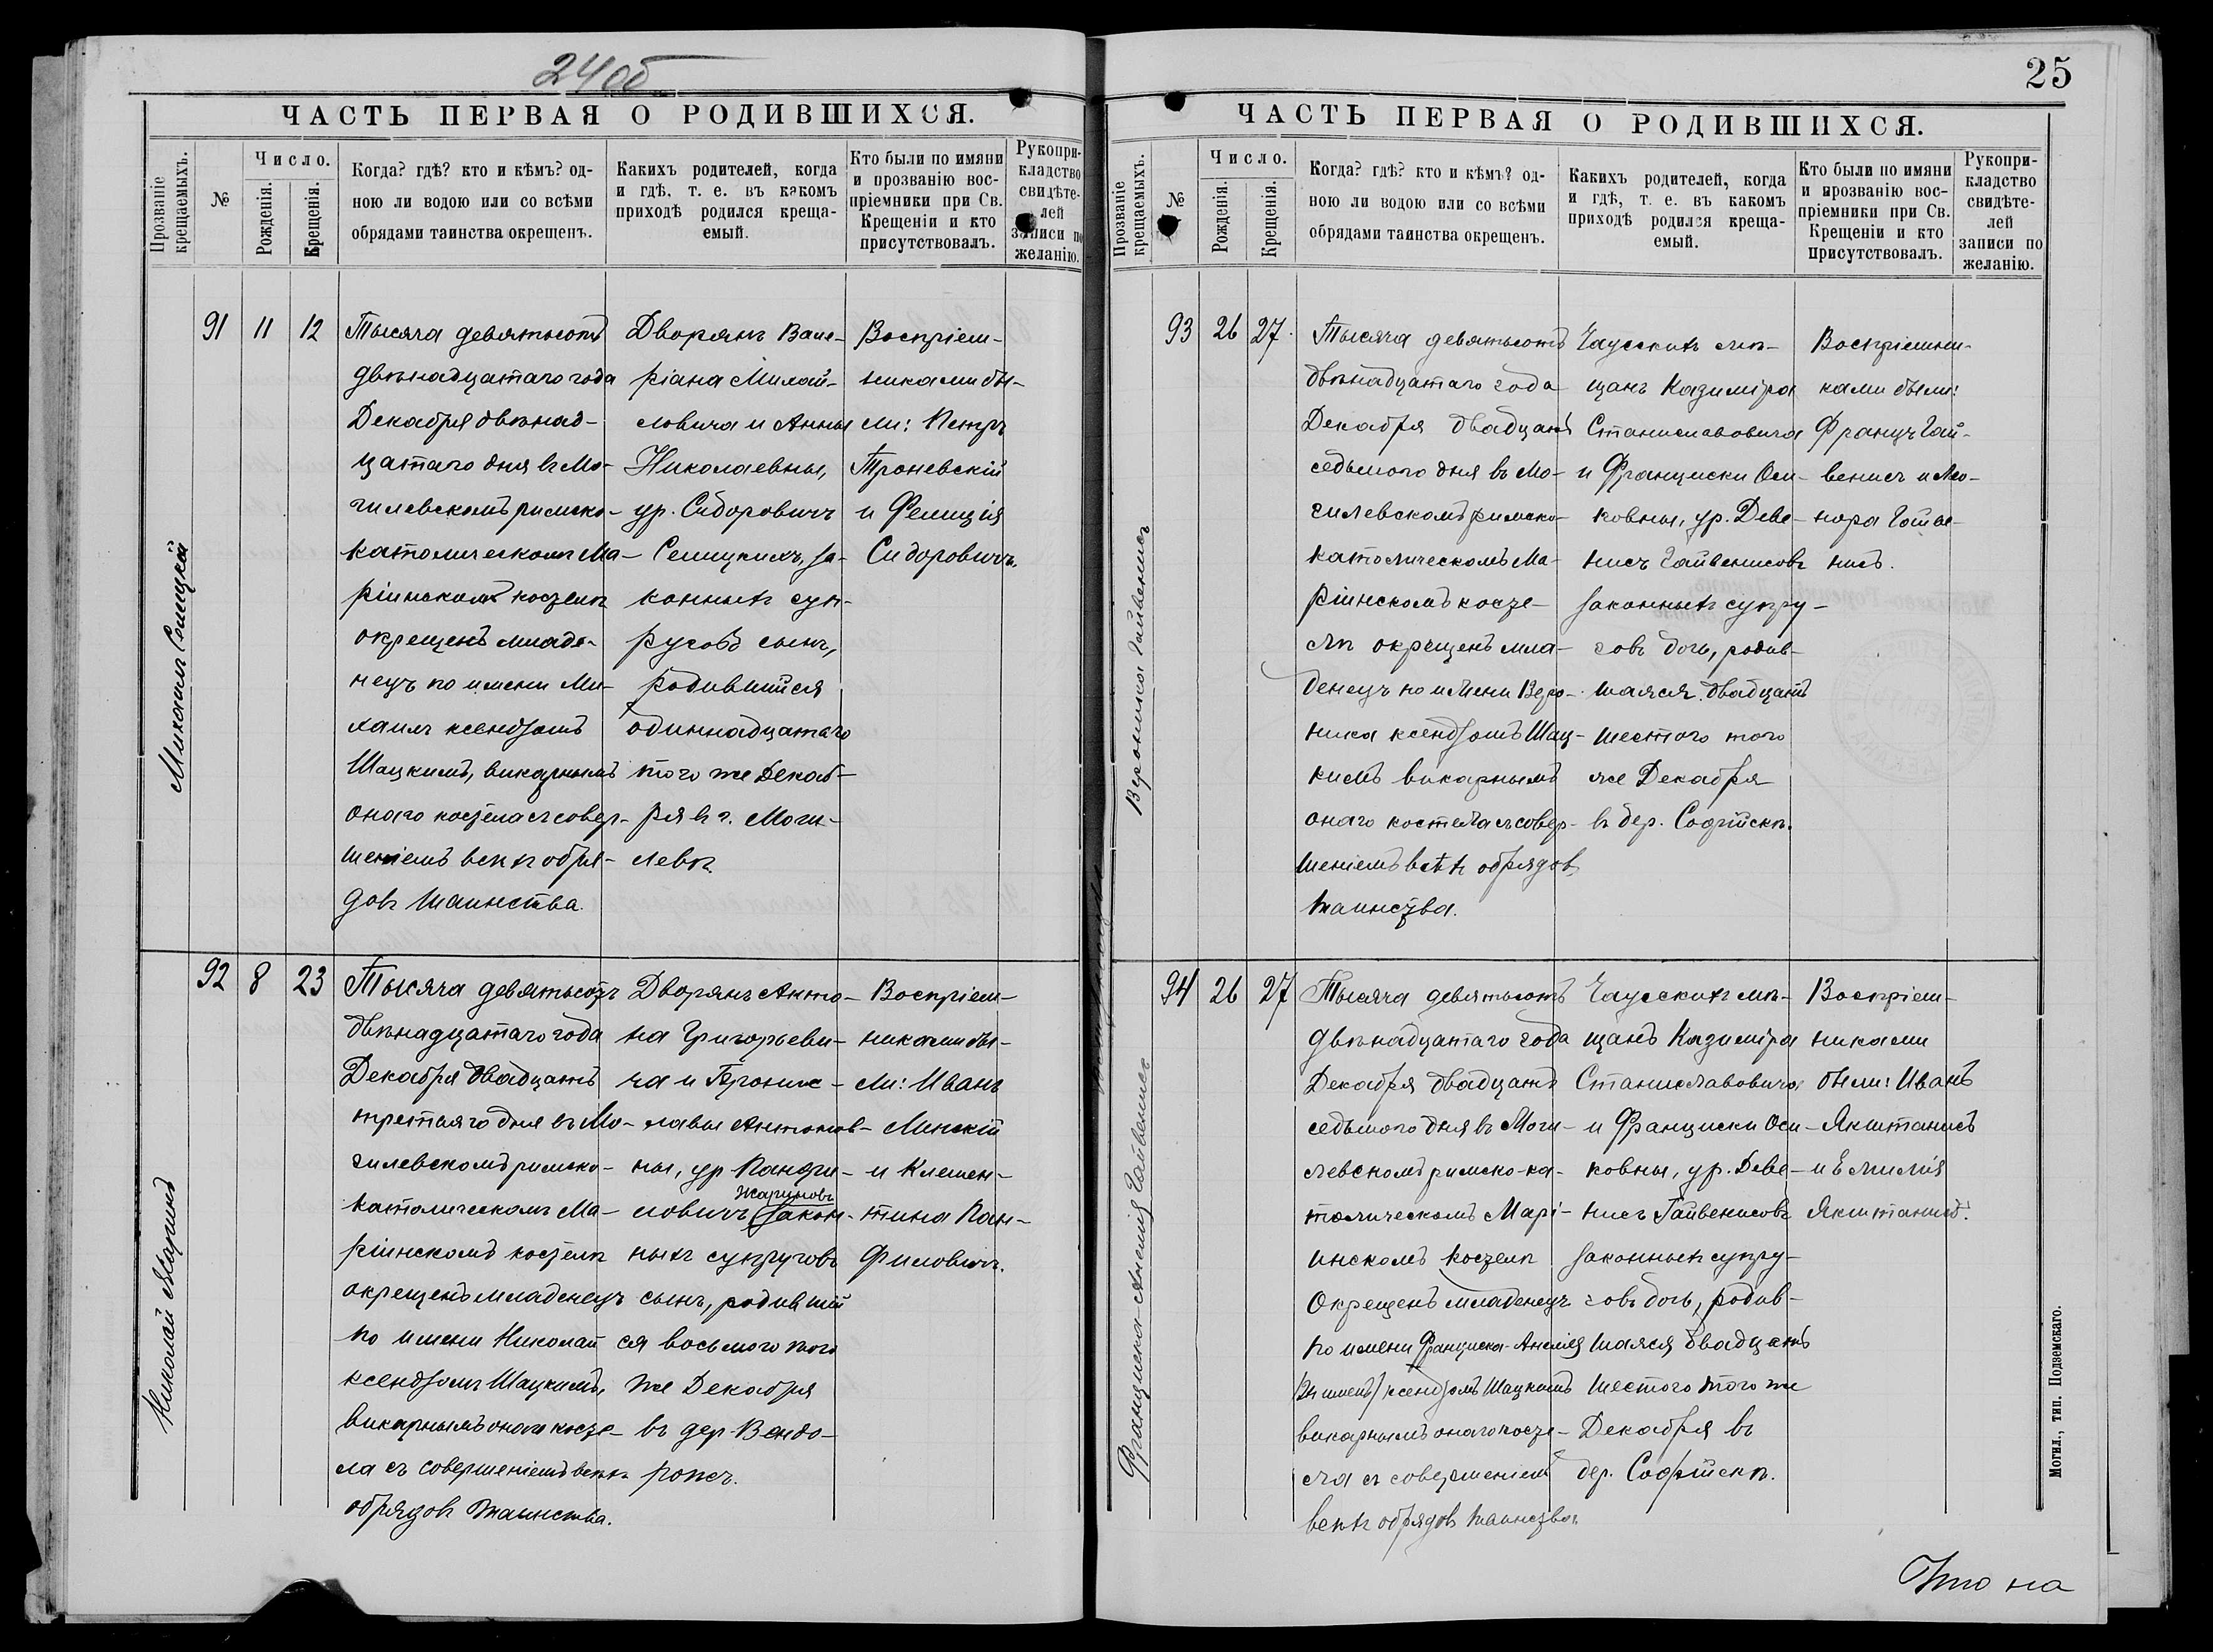 24 об
ЧАСТЬ ПЕРВАЯ О РОДИВШИХСЯ.
Прозваніе крещаемыхъ.
№
Число.
Рожденія.
Крещенія.
Когда? гдѣ? кто и кѣмъ? од-
ною ли водою или со всѣми
обрядами таинства окрещенъ.
Какихъ родителей, когда
и гдѣ, т. е. въ какомъ
приходѣ родился креща-
емый.
Кто были по имяни
и прозванію вос-
пріемники при Св.
Крещеніи и кто
присутствовалъ.
Рукопри-
кладство
свидѣте-
лей
записи по
желанію.
Михаилъ Селицкій
91 11 12
Тысяча девятьсотъ
двѣнадцатаго года
Декабря двѣнад-
цатаго дня въ Мо-
гилевскомъ римско-
католическомъ Ма-
ріинскомъ костелѣ
окрещенъ младе-
нецъ по имени Ми-
хаилъ ксендзомъ
Шацкимъ, викарнымъ
онаго костела съ совер-
шеніемъ всѣхъ обря-
довъ таинства.
Дворянъ Вале-
ріана Михай-
ловича и Анны
Николаевны,
ур. Сидоровичъ
Селицкихъ, за-
конныхъ суп-
руговъ сынъ,
родившійся
одиннадцатаго
того же Декаб-
ря въ г. Моги-
левѣ.
Воспріем-
никами бы-
ли: Петръ
Троневскій
и Фелиція
Сидоровичъ.
Николай Жаринъ
92 8 23
Тысяча девятьсотъ
двѣнадцатаго года
Декабря двадцать
третьяго дня въ Мо-
гилевскомъ римско-
католическомъ Ма-
ріинскомъ костелѣ
окрещенъ младенецъ
по имени Николай
ксендзомъ Шацкимъ,
викарнымъ онаго косте-
ла съ совершеніемъ всѣхъ
обрядовъ таинства.
Дворянъ Анто-
на Григорьеви-
ча и Брониc-
лавы Антонов-
ны, ур. Панфи-
ловичъ Жариновъ закон-
ныхъ супруговъ
сынъ, родившій
ся восьмого того
же Декабря
въ дер. Вендо-
рожъ.
Воспріем-
никами бы-
ли: Иванъ
Минскій
и Клемен-
тина Пан-
филовичъ.
25
ЧАСТЬ ПЕРВАЯ О РОДИВШИХСЯ.
Прозваніе крещаемыхъ.
№
Число.
Рожденія.
Крещенія.
Когда? гдѣ? кто и кѣмъ? од-
ною ли водою или со всѣми
обрядами таинства окрещенъ.
Какихъ родителей, когда
и гдѣ, т. е. въ какомъ
приходѣ родился креща-
емый.
Кто были по имяни
и прозванію вос-
пріемники при Св.
Крещеніи и кто
присутствовалъ.
Рукопри-
кладство
свидѣте-
лей
записи по
желанію.
Вероника Гайвенисъ
93 26 27
Тысяча девятьсотъ
двѣнадцатаго года
Декабря двадцать
седьмого дня въ Мо-
гилевскомъ римско-
католическомъ Ма-
ріинскомъ косте-
лѣ окрещенъ мла-
денецъ по имени Веро-
ника ксендзомъ Шац-
кимъ викарнымъ
онаго костела съ совер-
шеніемъ всѣхъ обрядовъ
таинства.
Чаусскихъ мѣ-
щанъ Казиміра
Станиславовича
и Франциски Оси-
повны, ур. Деве-
нисъ Гайвенисовъ
законныхъ супру-
говъ дочь, родив-
шаяся двадцать
шестого того
же Декабря
въ дер. Софійскѣ.
Воспріемни-
ками были:
Францъ Гай-
венисъ и Лео-
нора Гайве-
нисъ.
Франциска-Анелія Гайвенисъ
94 26 27
Тысяча девятьсотъ
двѣнадцатаго года
Декабря двадцать
седьмого дня въ Моги-
левскомъ римско-ка-
толическомъ Марі-
инскомъ костелѣ
окрещенъ младенецъ
по имени Франциска-Анелія
ксендзомъ Шацкимъ
викарнымъ онаго косте-
ла съ совершеніемъ
всѣхъ обрядовъ таинства.
Чаусскихъ мѣ-
щанъ Казиміра
Станиславовича
и Франциски Оси-
повны, ур. Деве-
нисъ Гайвенисовъ
законныхъ супру-
говъ дочь, родив-
шаяся двадцать
шестого того же
Декабря въ
дер. Софійскѣ.
Воспріем-
никами
были: Иванъ
Якштанисъ
и Емилія
Якштанисъ.
Могил., тип. Подземскаго.
Что на